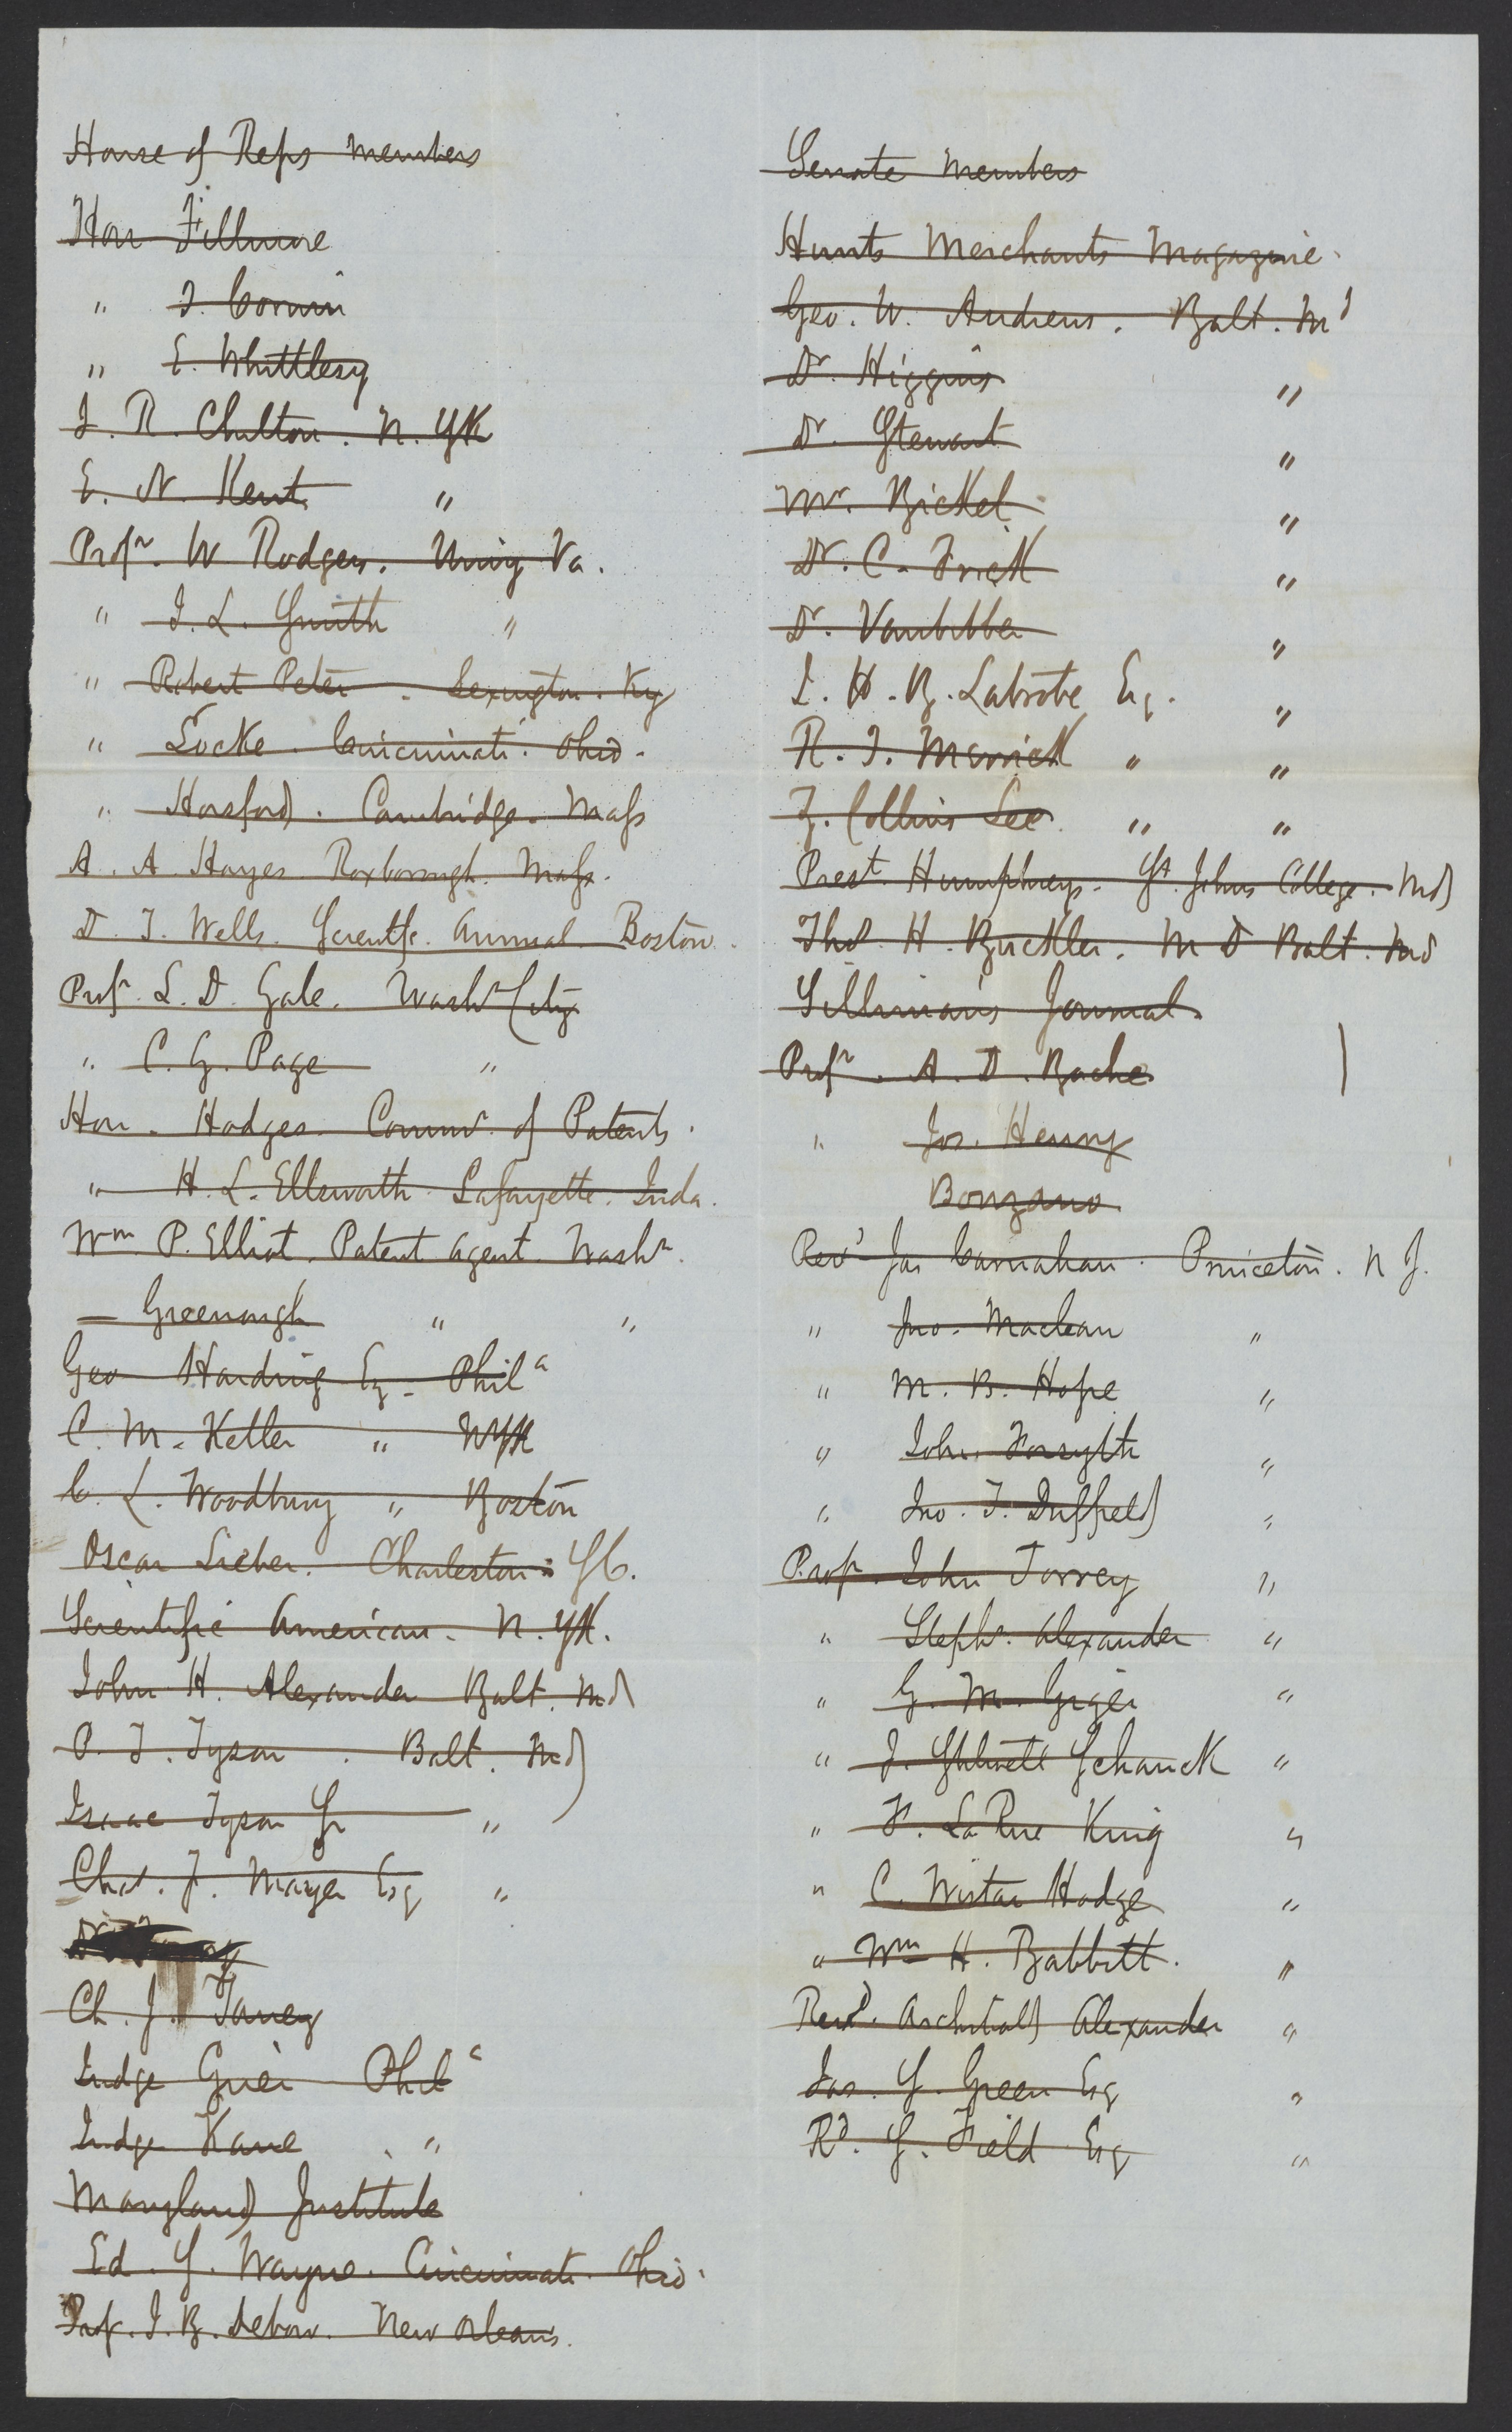 House of Reps members
Hon Fillmore
" T. Corwin
" E. Whittlesy
J. R. Chilton. N. YK
E. N. Kent "
Profr. W Rodgers. Univy Va.
" J. L. Smith "
" Robert Peter. Lexington. Ky
" Locke. Cincinnati. Ohio.
" Horsford. Cambridge. Mass
A. A Hayes Roxborough. Mass.
D. T. Wells. Scientfc. Annual. Boston.
Profr. L. D. Gale. Washn City
" C. G. Page "
Hon. Hodges. Commr. of Patents.
" H. L. Ellsworth. Lafayette. Inda.
Wm P. Elliot. Patent agent. Washn.
— Greenough " "
Geo Harding Esq. Phila
C. M. Keller " NYK
C. L. Woodbury " Boston
Oscar Lieber. Charleston. SC.
Scientific American. N. YK.
John H. Alexander Balt. Md
P. T. Tyson. Balt. Md
Isaac Tyson Jr "
Chas. F. Mayer Esq "
Ch. J. Taney
Judge Grier Phila
Judge Kane "
Maryland Institute
Ed. S. Wayne. Cincinnati. Ohio.
Prof. J. B. Debow. New Orleans.
Senate Members
Hunts Merchants Magazine.
Geo. W. Andrews. Balt. Md
Dr. Higgins "
Dr. Stewart "
Mr. Bickel "
Dr. C. Frick "
Dr. Vanbibber "
J. H. B. Latrobe Esq. "
R. T. Merrick " "
Z. Collins Lee " "
Prest. Humphreys. St. Johns College. Md
Thos. H. Buckler. M D Balt. Md
Silliman's Journal.
Profr. A. D. Bache
" Jos. Henry
Bonzano
Revd Jas Carnahan. Princeton. N J.
" Jno. Maclean "
" M. B. Hope "
" John Forsyth "
" Jno. T. Duffield "
Prof. John Torrey "
" Stephn. Alexander "
" G. M. Giger "
" J. Stilwell Schanck "
" F. La Rue King "
" C. Wistar Hodge "
" Wm H. Babbitt. "
Revd. Archibald Alexander "
Jas. S. Green Esq "
Rd. S. Field Esq "